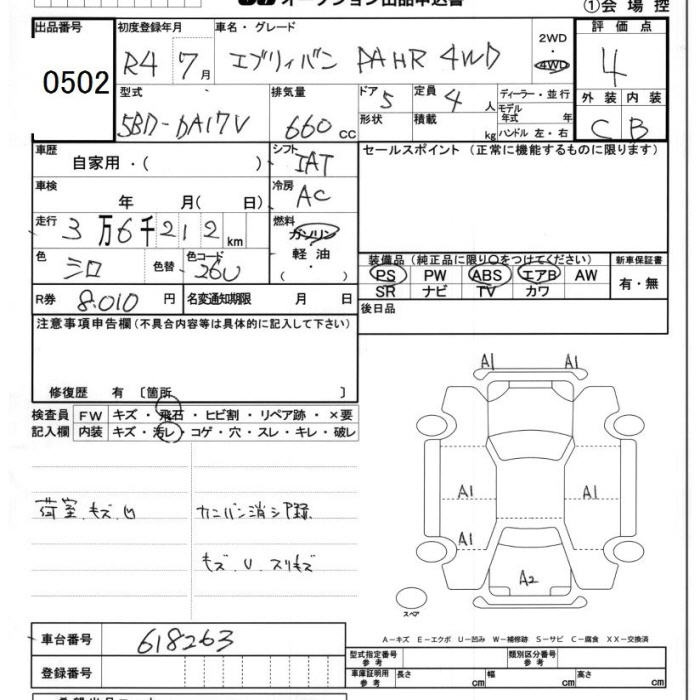 オークション出品申込書
①会場控
出品番号
0502
初度登録年月
R4 7月
車名・グレード
エブリィバン PA HR 4WD
2WD
・
4WD
評価点
4
型式
5BD-DA17V
排気量
660 cc
ドア 5
定員 4 人
ディーラー・並行
モデル年式 年
形状
積載 kg
ハンドル 左・右
外装 内装
C B
車歴
自家用・( )
シフト
IAT
セールスポイント (正常に機能するものに限ります)
車検
年 月( 日)
冷房
AC
走行
3万6千212km
燃料
ガソリン
軽油
( ・ )
色
シロ
色替
色コード
26U
装備品 (純正品に限り○をつけてください)
新車保証書
PS PW ABS エアB AW
有・無
SR ナビ TV カワ
R券 8.010 円
名変通知期限 月 日
後日品
注意事項申告欄(不具合内容等は具体的に記入して下さい)
修復歴 有 〔箇所 〕
検査員
記入欄
FW キズ・飛石・ヒビ割・リペア跡・×要
内装 キズ・汚レ・コゲ・穴・スレ・キレ・破レ
荷室.キズ.凹
カンバン消シ跡.
キズ.U.スリキズ
A1 A1
A1 A1
A1
A2
スペア
A-キズ E-エクボ U-凹み W-補修跡 S-サビ C-腐食 XX-交換済
車台番号 618263
登録番号
型式指定番号 参考
類別区分番号 参考
車庫証明用 参考
長さ cm
幅 cm
高さ cm